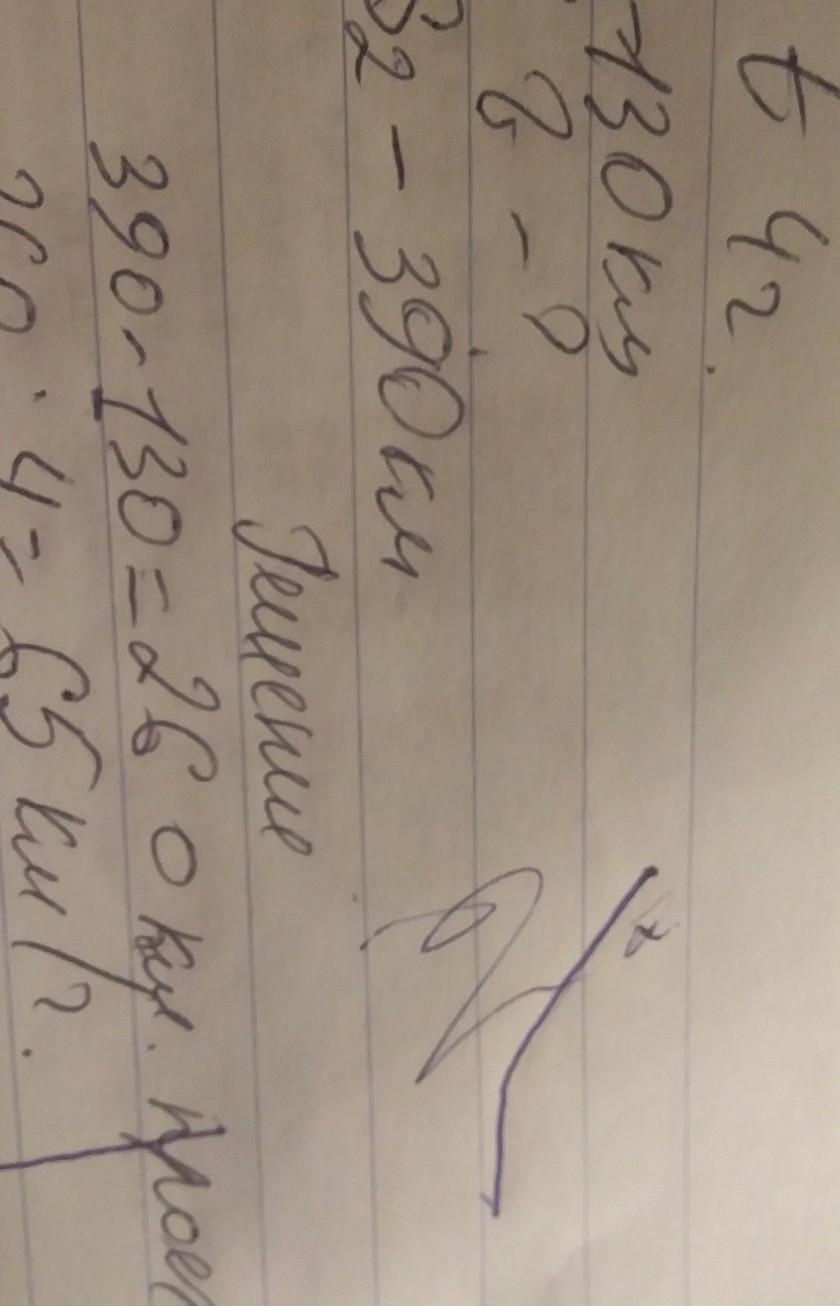 t 4г.
-130км
ʋ - ?
S2 - 390км
Решение
390-130=260км. прое
260:4=65км/г.